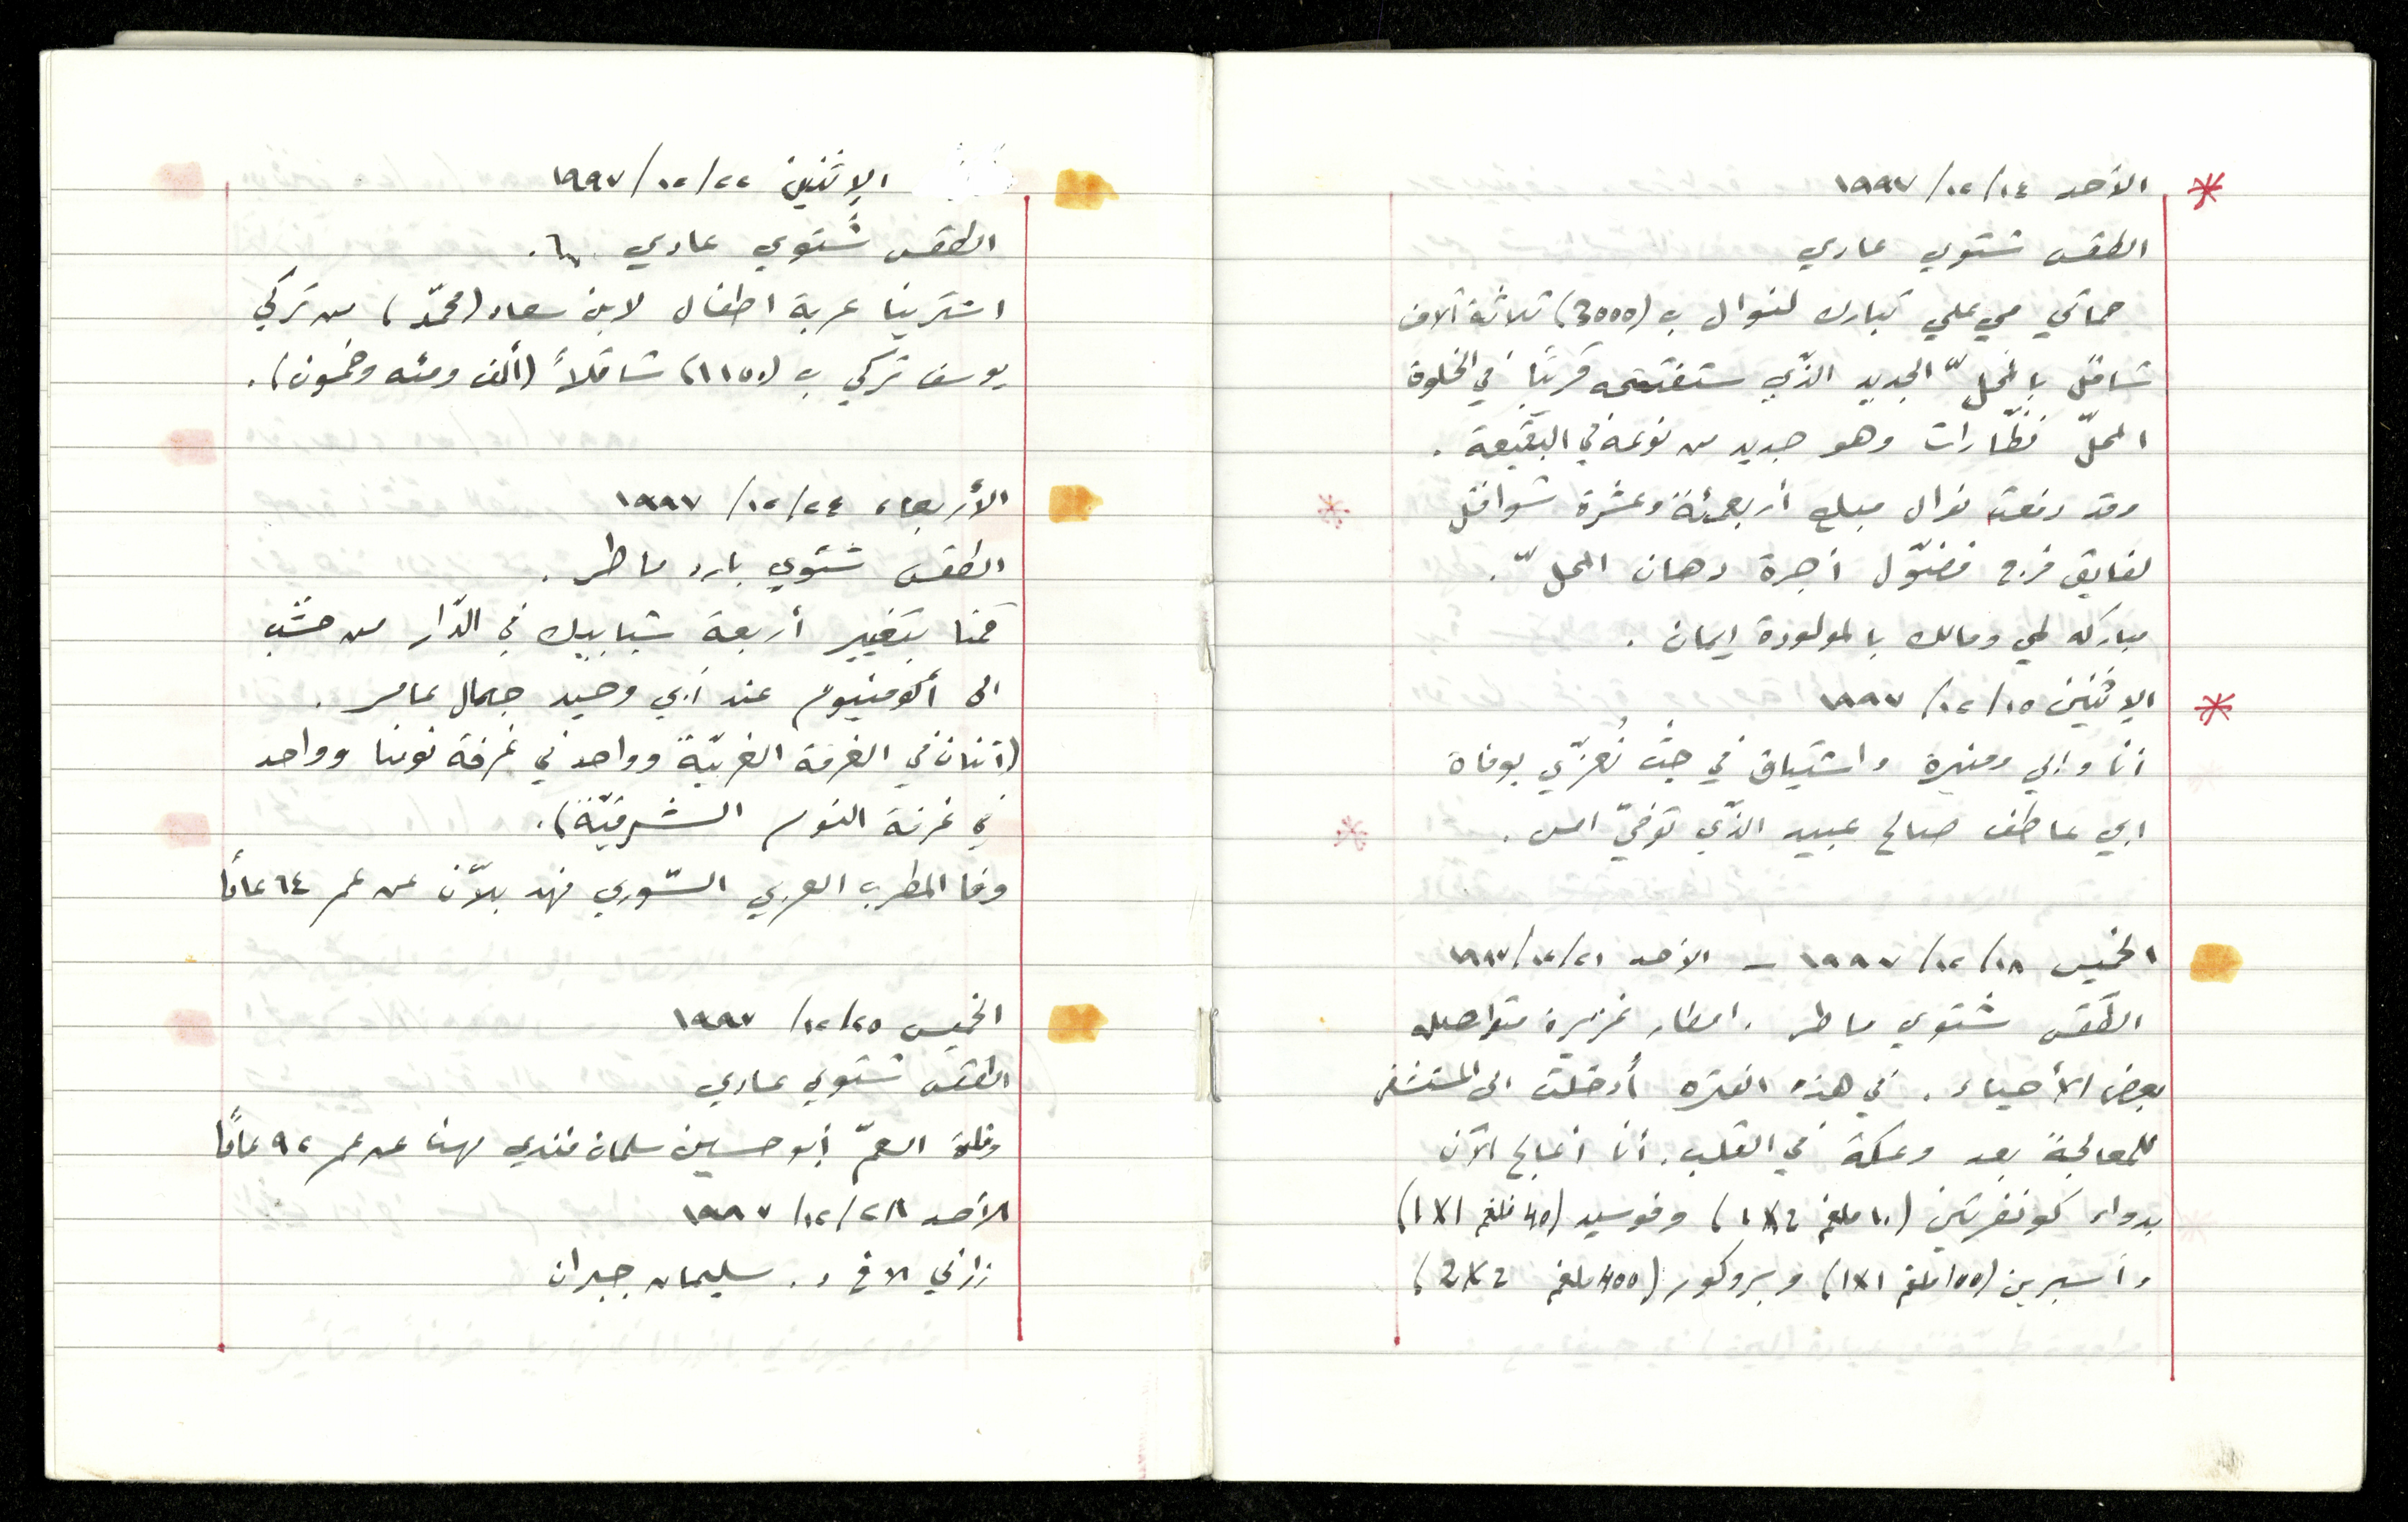 الأحد ١٤/١٢/١٩٩٧
الطقس شتوي عادي
حماتي مي علي تبارك لنوال ب (3000) ثلاثة آلاف
شاقل بالمحلّ الجديد الذّي ستفتتحه قريبًا في الخلوة
المحلّ نظّارات وهو جديد من نوعه في البقيعة .
وقد دفعت نوال مبلغ أربعمئة وعشرة شواقل
لفايق فرج فضّول أجرة دهان المحلّ .
مباركه لمي ومالك بالمولودة إيمان .
الإثنين ١٥/١٢/١٩٩٧
أنا وابي ومنيرة واشتياق في جثّ نُعزّي بوفاة
ابي عاطف صالح عبيد الذّي توفيّ امس .
الخميس ١٨/١٢/١٩٩٧ – الأحد ٢١/١٢/١٩٩٧
الطّقس شتوي ماطر . امطار غزيرة متواصله
بعض الأحياء . في هذه الفتره أُدخلت الى المستشفى
للمعالجة بعد وعكة في القلب . أنا أعالج الآن
بدواء كونفرتين (١٠ملغم 2X١) وفوسيد (40ملغم 1X1)
وأسبرين (100ملغم 1X1) وبروكور (400ملغم 2X2)
الإثنين ٢٢/١٢/١٩٩٧
الطقس شتوي عادي .
اشترينا عربة اطفال لابن سعاد (محمّد) من تركي
يوسف تركي ب (١١٥٠) شاقلاً (ألف ومئه وخمسون) .
الأربعاء ٢٤/١٢/١٩٩٧
الطقس شتوي بارد ماطر .
قمنا بتغيير أربعة شبابيك في الدّار من خشب
الى ألومنيوم عند أبي وحيد جمال عامر .
(اثنان في الغرفة الغربيّة وواحد في غرفة نومنا وواحد
في غرفة النوم الشرقيّة) .
وفا المطرب العربي السّوري فهد بلّان عن عمر ٦٤ عامًا
الخميس ٢٥/١٢/١٩٩٧
الطقس شتوي عادي
وفاة العمّ أبو حسين سلمان فندي مهنا عن عمر ٩٢ عامًا
الأحد ٢٨/١٢/١٩٩٧
زارني الاخ د. سليمان جبران